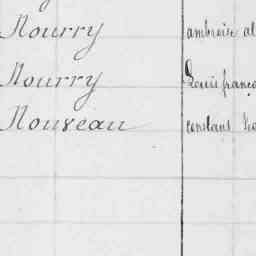 Nourry ambroise al
Nourry Louis franço
Nouveau constant